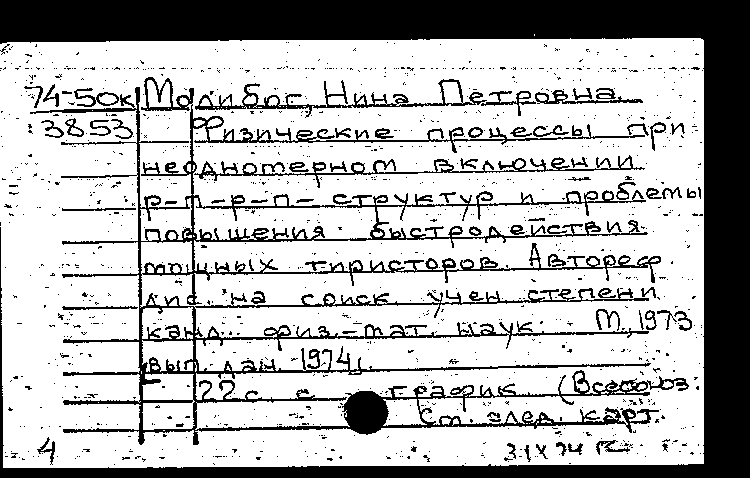 74-50к Молибог, Нина Петровна.
:3853 Физические процессы при
неоднотерном включении
p-n-p-n- структур и проблемы
повышения быстродействия
мощных тиристоров. Автореф.
дис. на соиск. учен степени
канд. физ.-мат. наук. М., 1973
[вып. дан. 1974].
22 с. с график. (Всесоюз.
См. след. карт.
4